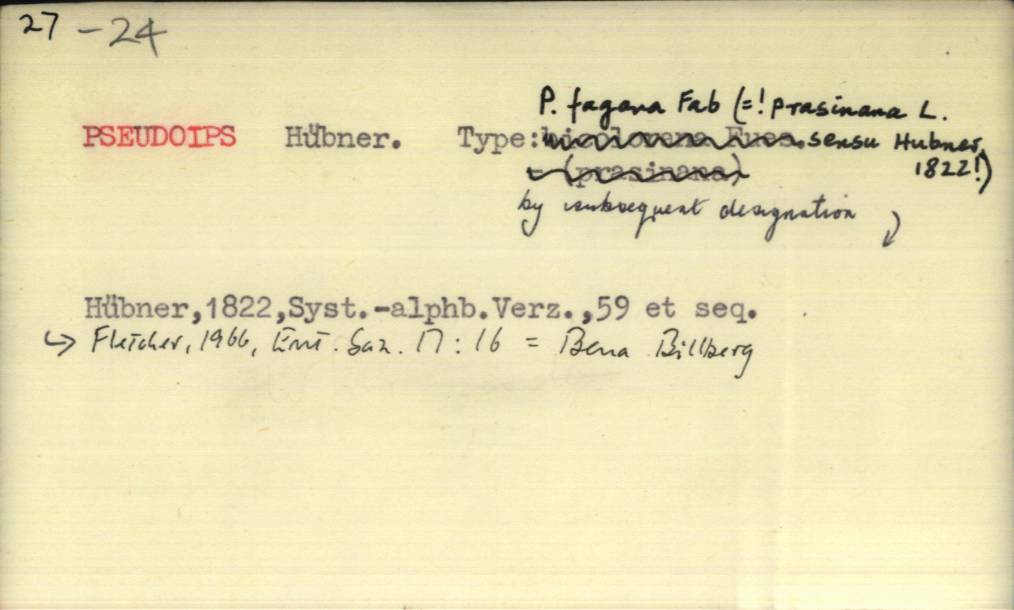 27 - 24
P. fagana Fab (=! prasinana L.
PSEUDOIPS Hübner. Type: bicolorana Fues. sensu Hubner,
= (prasinana) 1822!)
by subsequent designation
Hübner,1822,Syst.-alphb.Verz.,59 et seq.
↳ Fletcher, 1966, Ent. Gaz. 17 : 16 = Bena Billberg